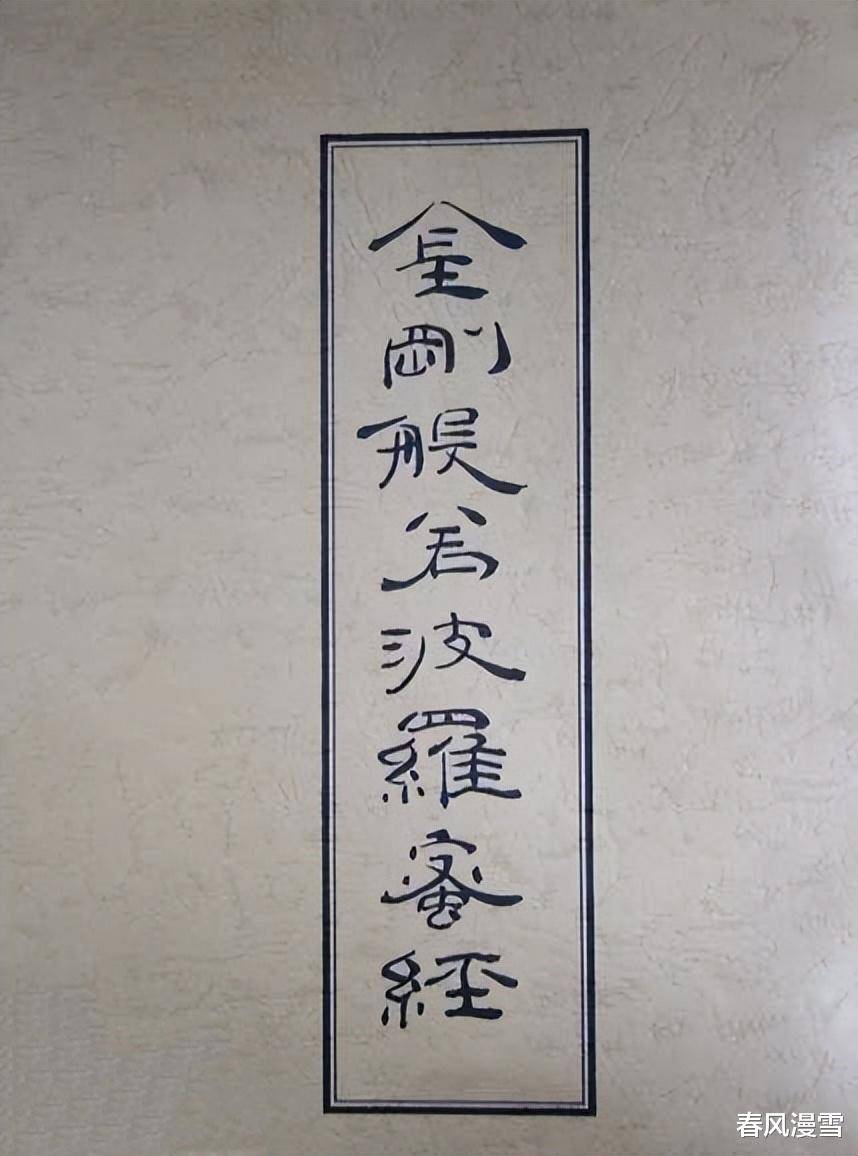 金剛般若波羅蜜經
春风漫雪